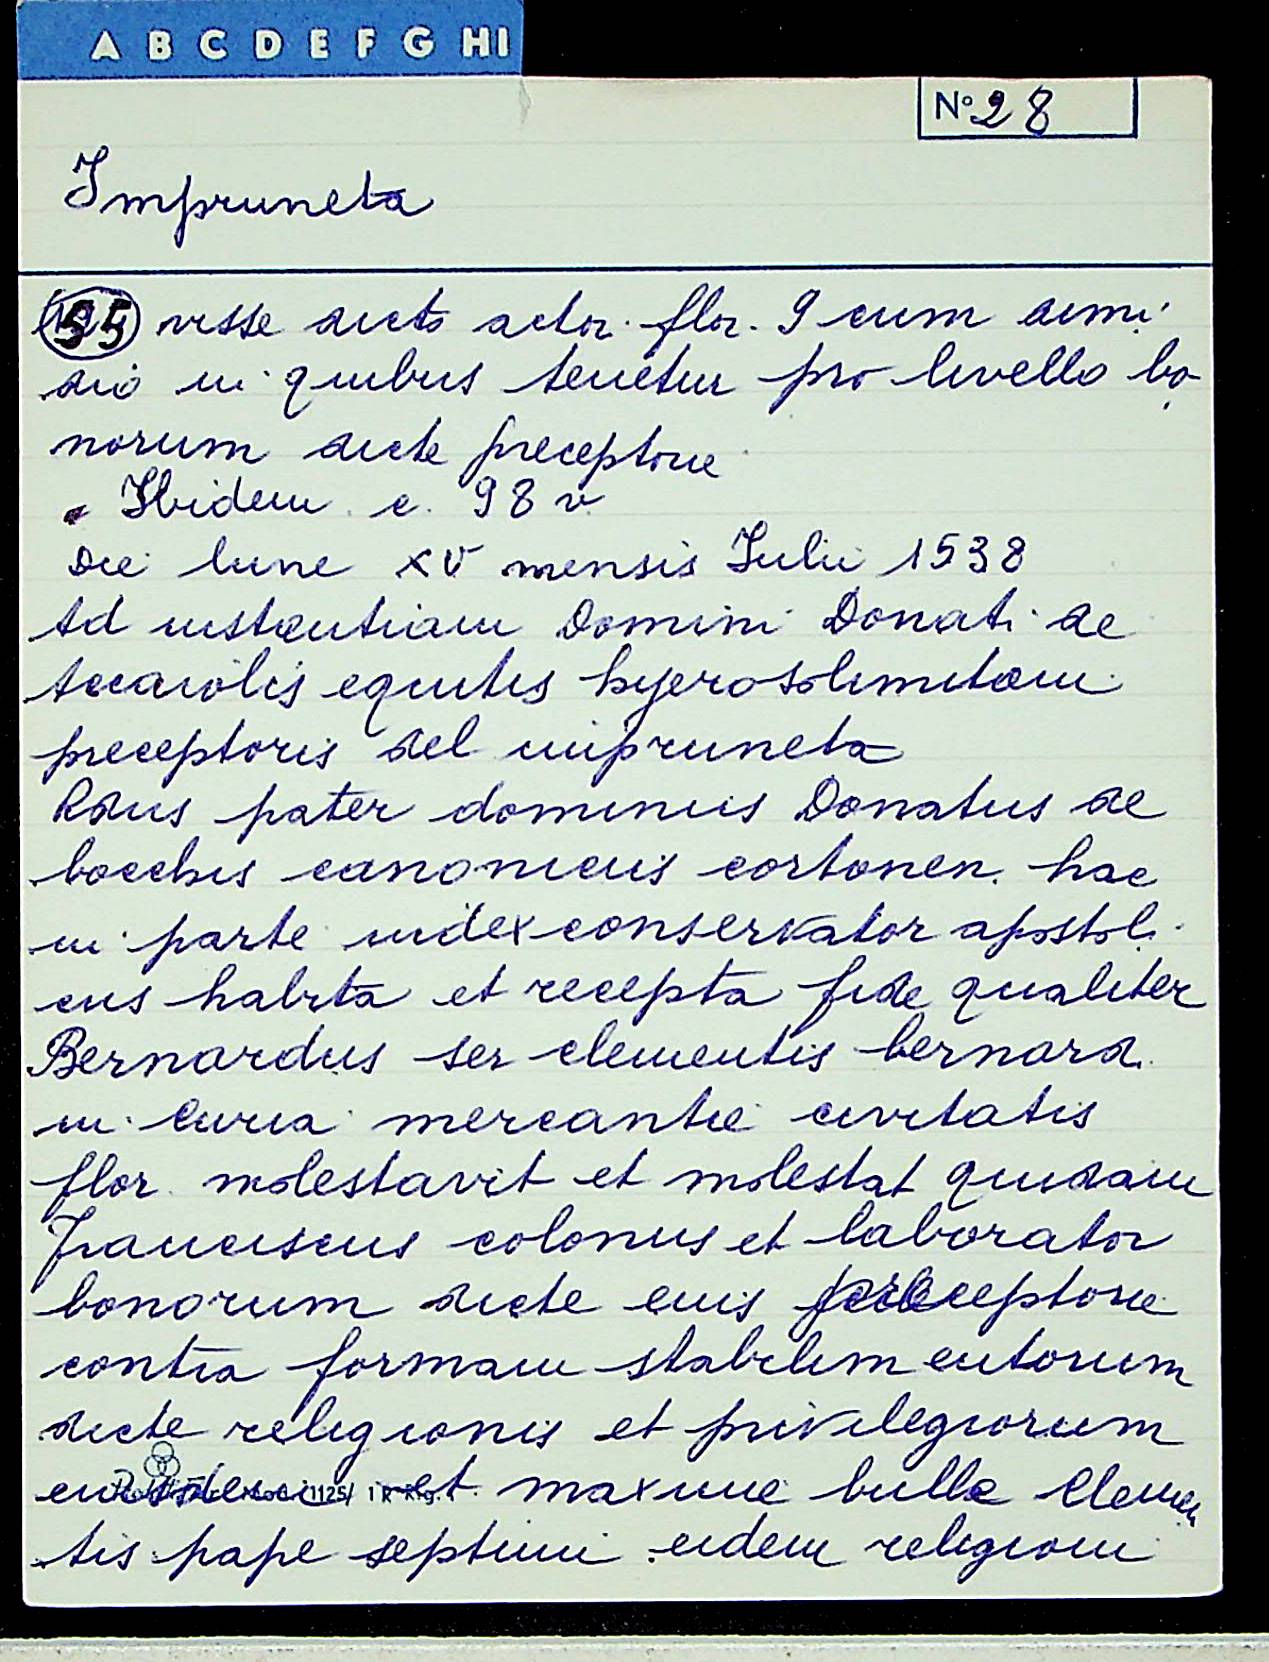 A B C D E F G H I
N° 28
Impruneta
55 visse dicto actor. flor. 9 cum dimi
dio in quibus tenetur pro livello bo
norum dicte preceptorie
Ibidem c. 98 v
Die lune XV mensis Iulii 1538
Ad instantiam Domini Donati de
Acciaiolis equitis hyerosolimitani
preceptoris del impruneta
Rdus pater dominus Donatus de
bocchis canonicus cortonen. hac
in parte iudex conservator apostoli
cus habita et recepta fide qualiter
Bernardus ser clementis bernardi
in curia mercantie civitatis
flor. molestavit et molestat quidam
Franciscus colonus et laborator
bonorum dicte eius preceptorie
contra formam stabilimentorum
dicte religionis et privilegiorum
eiusdem et maxime bulle Clemen
tis pape septimi eidem religioni